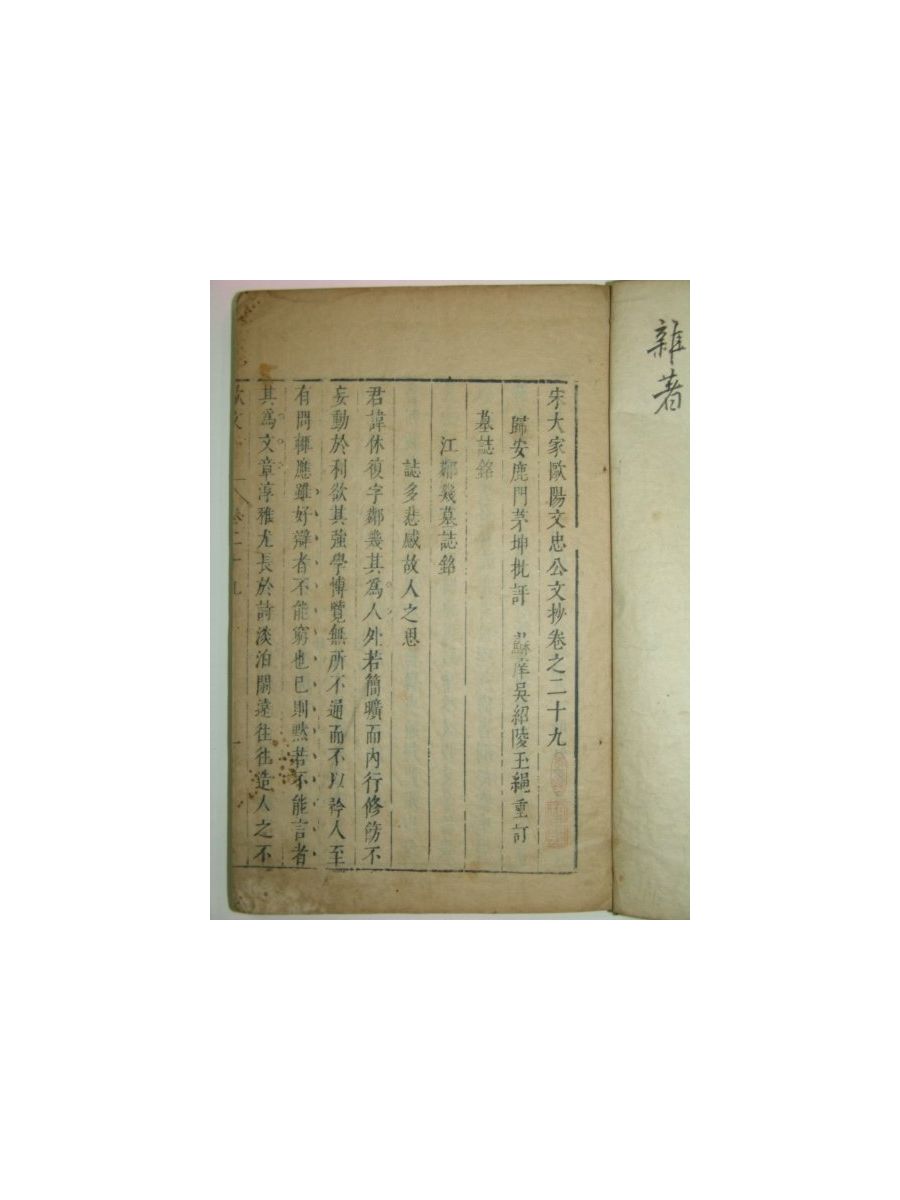 雜著
宋大家歐陽文忠公文抄卷之二十九
歸安鹿門茅坤批評 姑蘇吳紹陵玉繩重訂
墓誌銘
江鄰幾墓誌銘
誌多悲感故人之思
君諱休復字鄰幾其為人外若簡曠而內行修飭不
妄動於利欲其強學博覽無所不通而不以矜人至
有問輒應雖好辯者不能窮也已則默若不能言者
其為文章淳雅尤長於詩淡泊閒遠往往造人之不
歐文 卷二十九 一